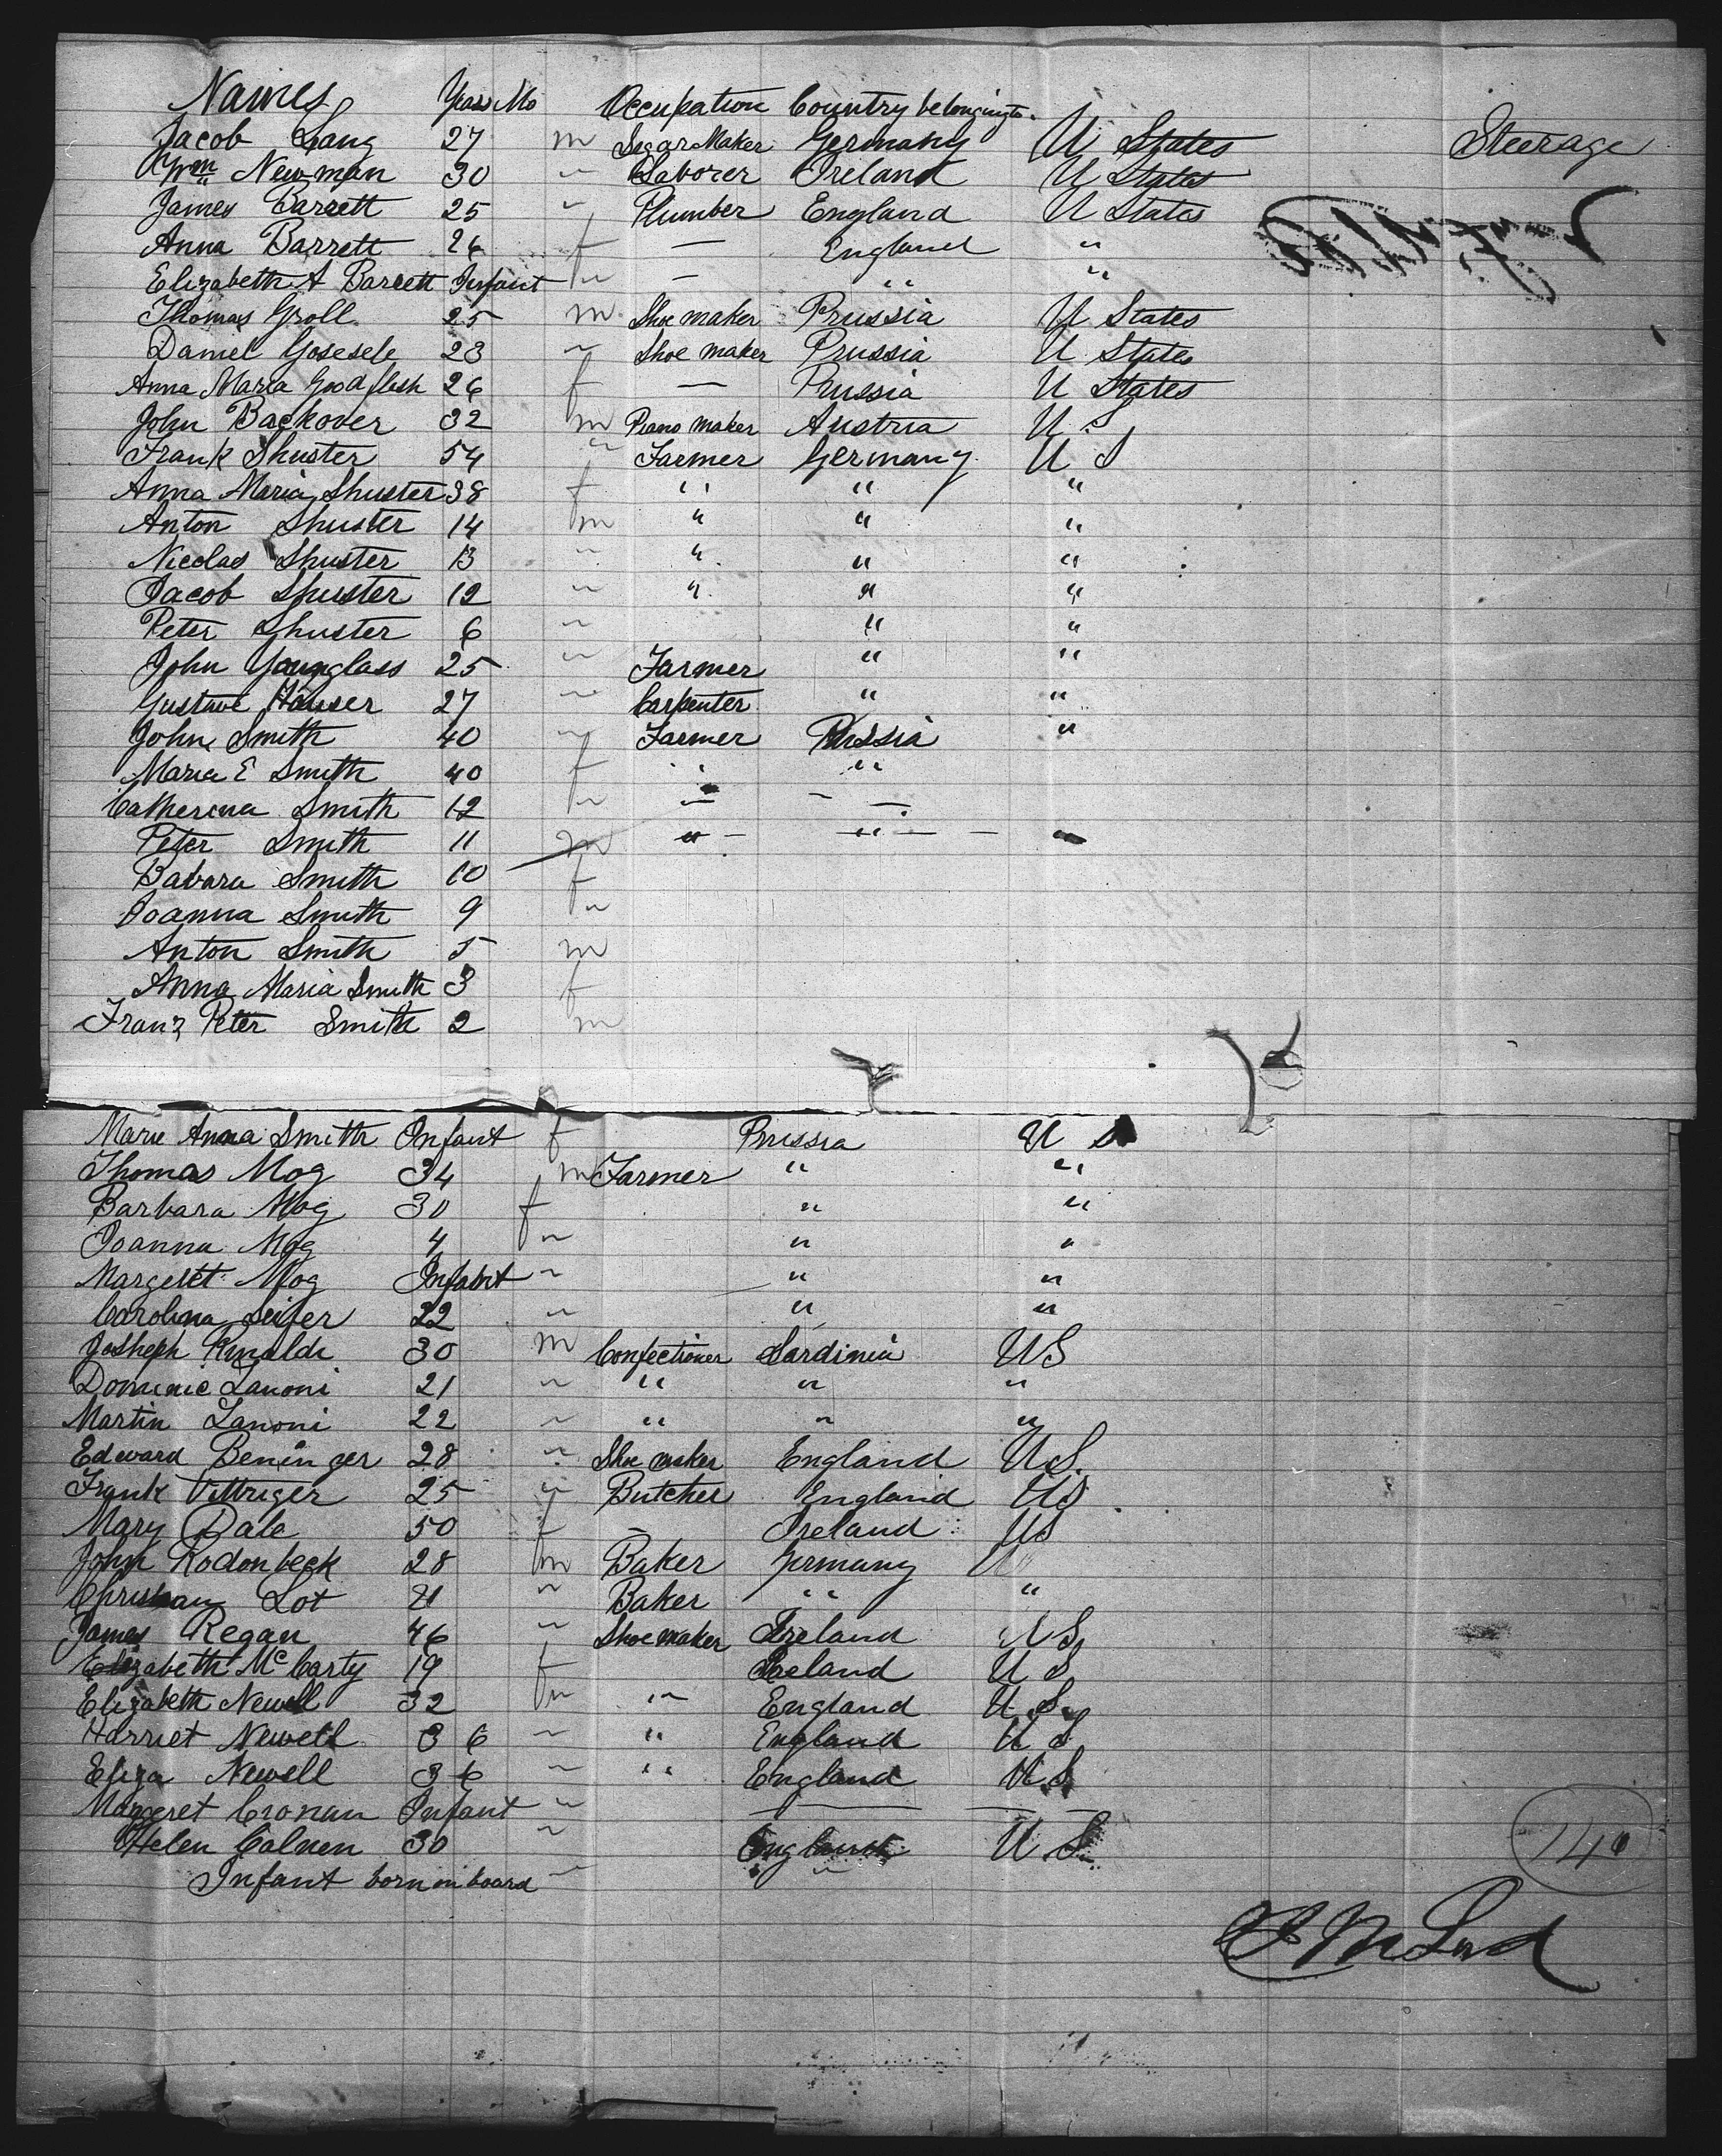 Names Years Mo Occupation Country belonging to.
Jacob Lang 27 m Segar Maker Germany U States Steerage
Wm Newman 30 " Laborer Ireland U States
James Barrett 25 " Plumber England U States
Anna Barrett 26 f — England "
Elizabeth A Barrett Infant " — " "
Thomas Groll 25 m Shoe maker Prussia U States
Daniel Gosesele 23 " Shoe maker Prussia U States
Anna Maria Goodflesh 26 f — Prussia U States
John Backover 32 m Piano maker Austria U S
Frank Shuster 54 " Farmer Germany U S
Anna Maria Shuster 38 f " " "
Anton Shuster 14 m " " "
Nicolas Shuster 13 " " " "
Jacob Shuster 12 " " " "
Peter Shuster 6 " " "
John Younglass 25 " Farmer " "
Gustave Hauser 27 " Carpenter " "
John Smith 40 " Farmer Prussia "
Maria E Smith 40 f " "
Catherina Smith 12 " — — —
Peter Smith 11 m " — " — — "
Babara Smith 10 f
Joanna Smith 9 "
Anton Smith 5 m
Anna Maria Smith 3 f
Franz Peter Smith 2 m
Marie Anna Smith Infant f Prussia U S
Thomas Mog 34 m Farmer " "
Barbara Mog 30 f " "
Joanna Mog 4 " " "
Margeret Mog Infant " " "
Carolina Seifer 22 " " "
Josheph Rinaldi 30 m Confectioner Sardinia U S
Dominic Zanoni 21 " " " "
Martin Zanoni 22 " " " "
Edward Beninger 28 " Shoe maker England U S.
Frank Vittriger 25 " Butcher England U S
Mary Dale 50 f — Ireland U S
John Rodonbeck 28 m Baker Germany U
Christian Lot 21 " Baker " "
James Regan 46 " Shoe maker Ireland U S
Elizabeth McCarty 19 f Ireland U S
Elizabeth Newell 32 " " England U S
Harriet Newell 3 6 " " England U S
Eliza Newell 3 6 " " England U S
Margeret Cronan Infant " — — —
Helen Calnen 30 " England U S
Infant born on board " "